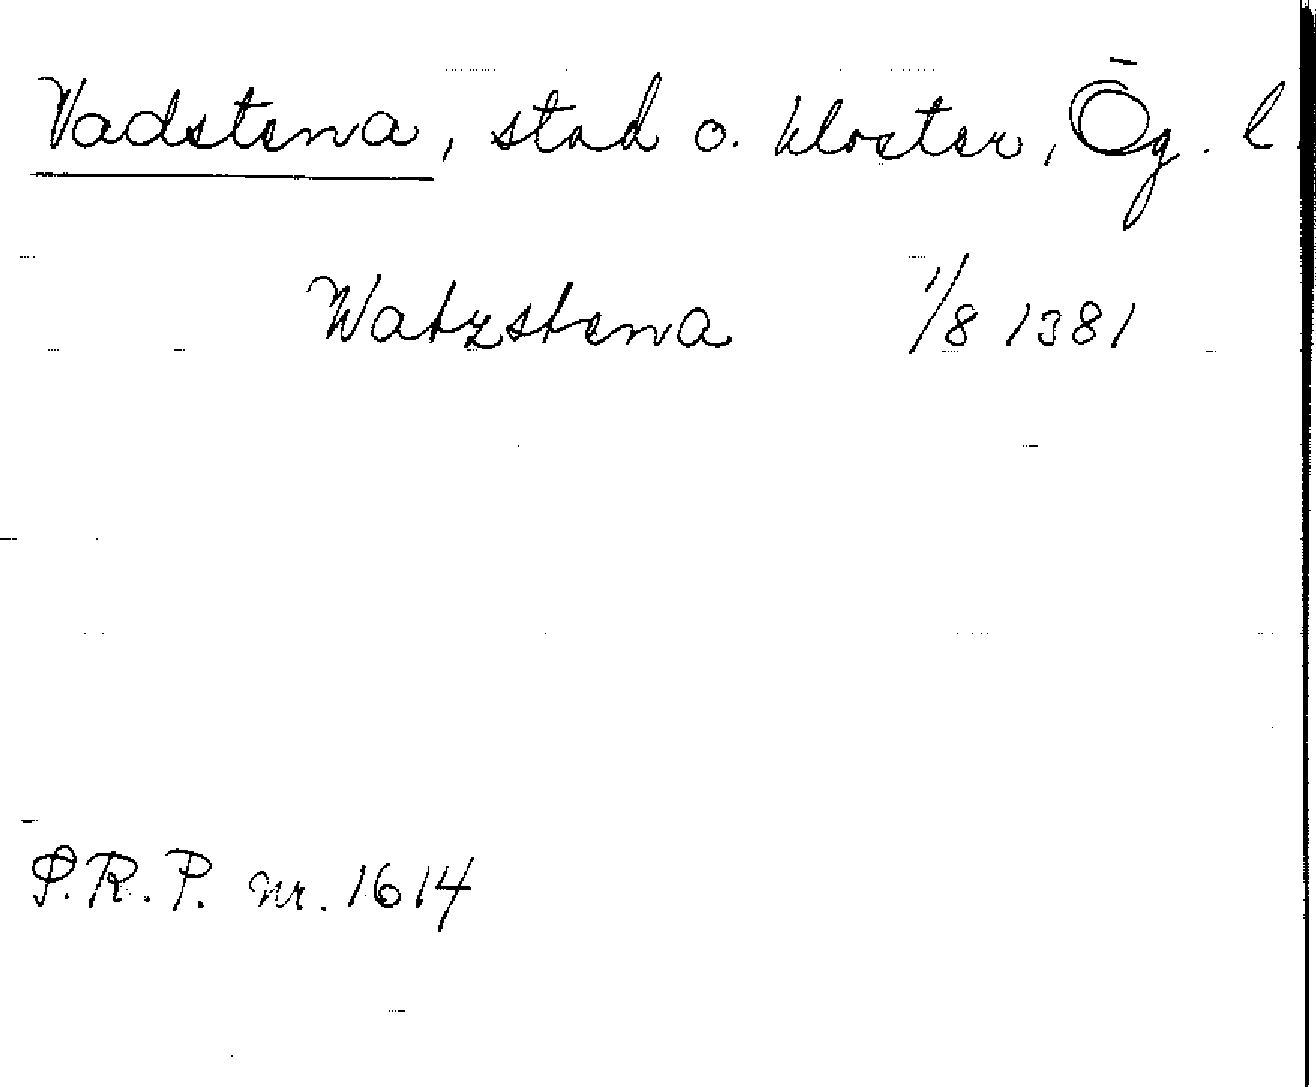 Vadstena, stad o. kloster, Ög. l.
Watzstena 1/8 1381
S.R.P. nr. 1614